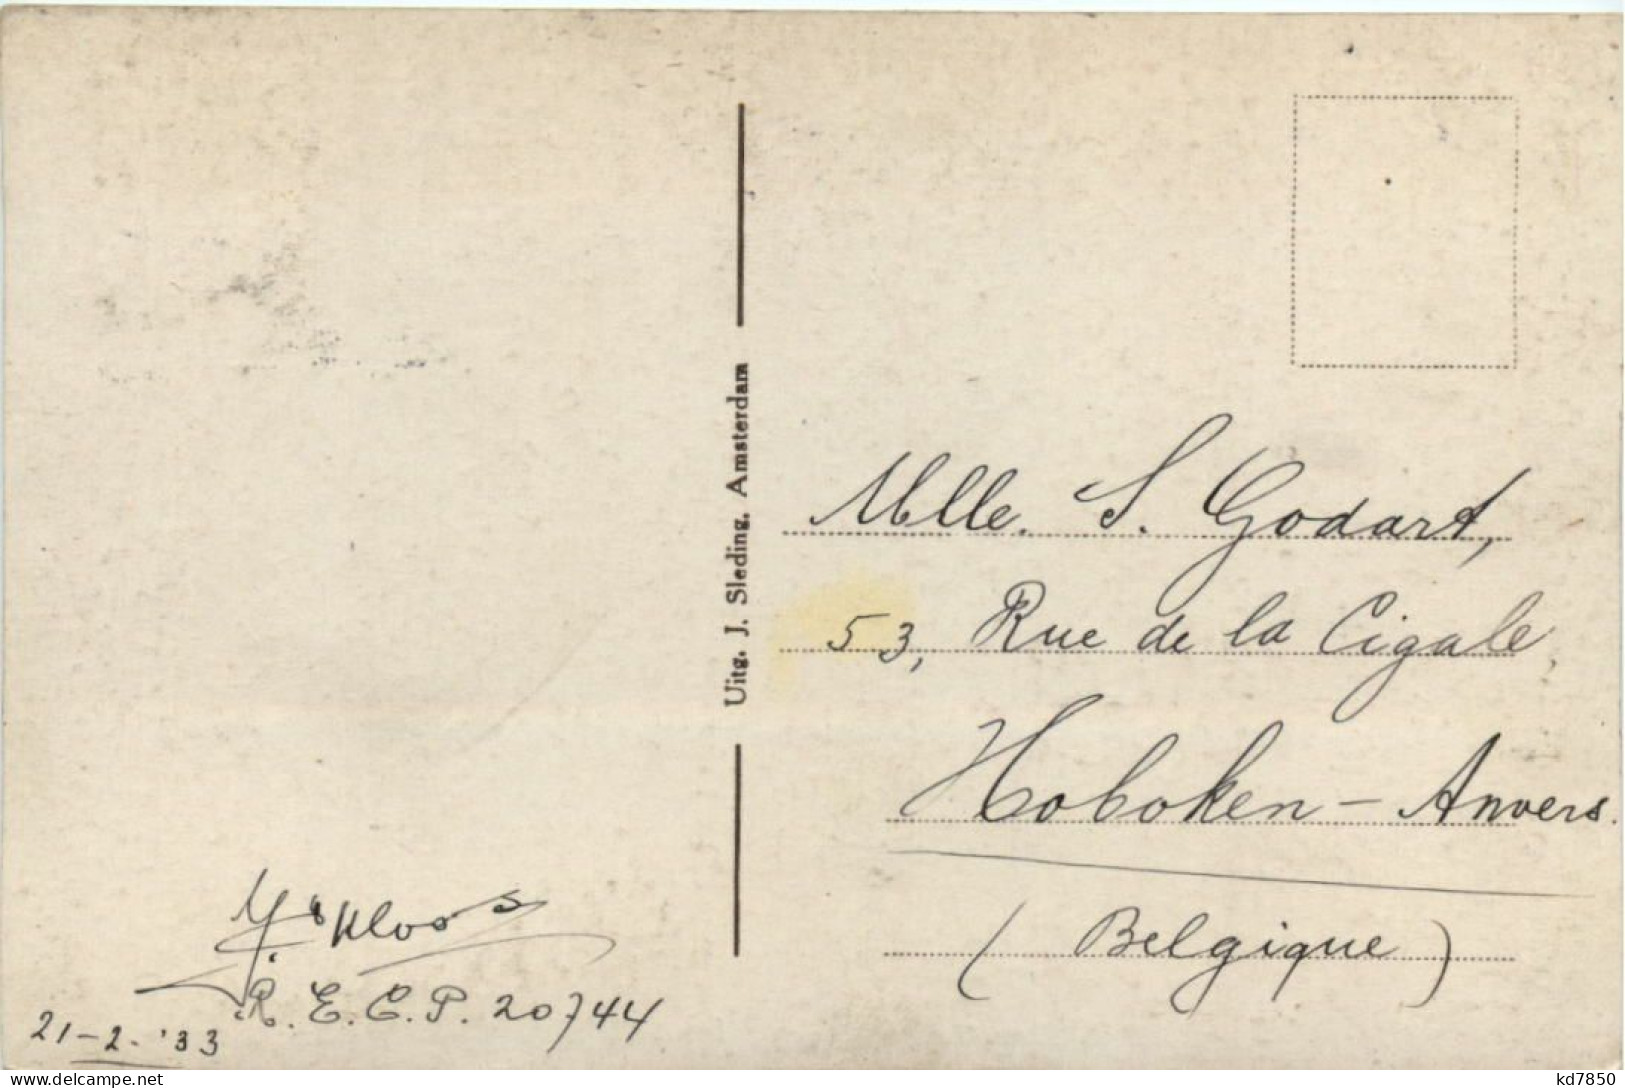 Uitg. J. Sleding, Amsterdam
Mlle. S. Godart,
53, Rue de la Cigale,
Hoboken - Anvers.
(Belgique)
Kloos
R.E.C.P. 20744
21-2-'33
www.delcampe.net
kd7850